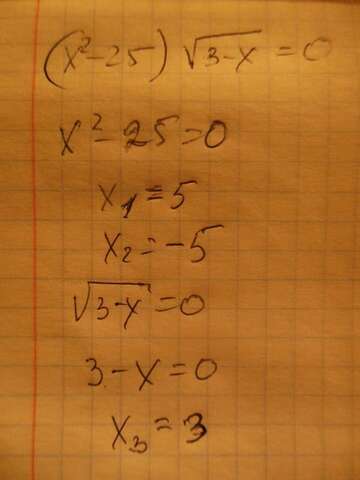 (x²-25)√(3-x)=0
x²-25=0
x₁=5
x₂=-5
√(3-x)=0
3-x=0
x₃=3